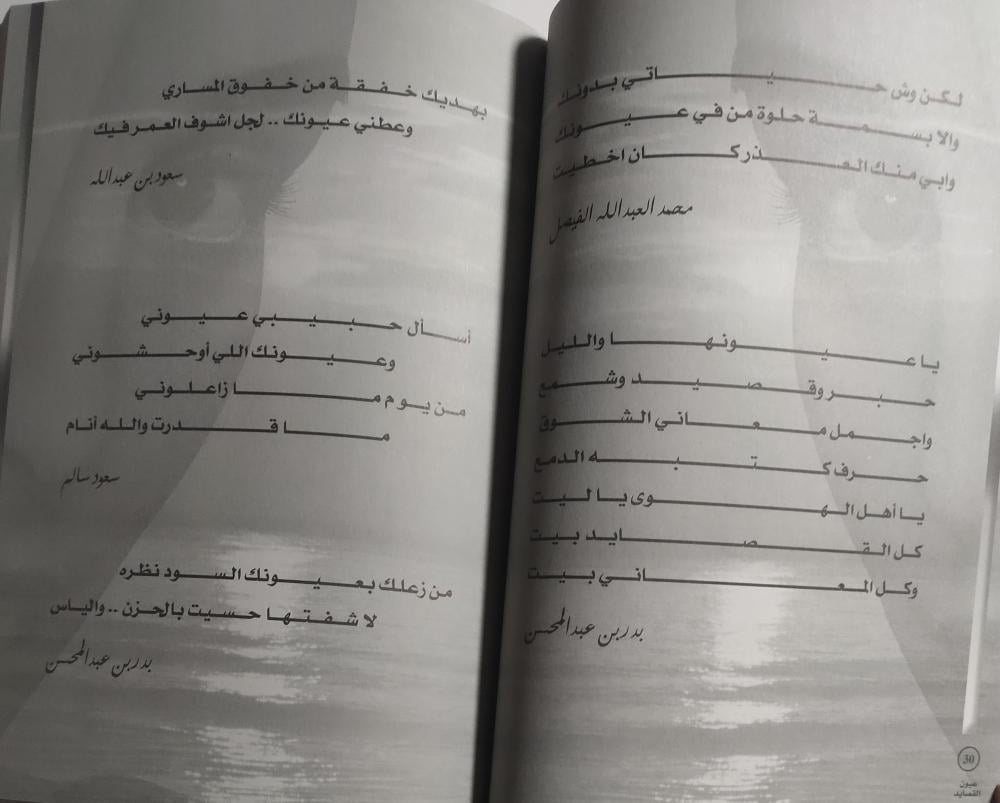 لكن وش حياتي بدونك
والا بسمة حلوة من في عيونك
وابي منك العذر كان اخطيت
محمد العبدالله الفيصل
يا عيونها والليل
حبر وقصيد وشمع
واجمل معاني الشوق
حرف كتبه الدمع
يا أهل الهوى يا ليت
كل القصايد بيت
وكل المعاني بيت
بدر بن عبدالمحسن
30
عيون
القصايد
بهديك خفقة من خفوق المساري
وعطني عيونك .. لجل اشوف العمر فيك
سعود بن عبدالله
أسأل حبيبي عيوني
وعيونك اللي أوحشوني
من يوم ما زاعلوني
ما قدرت والله أنام
سعود سالم
من زعلك بعيونك السود نظره
لا شفتها حسيت بالحزن .. والياس
بدر بن عبدالمحسن